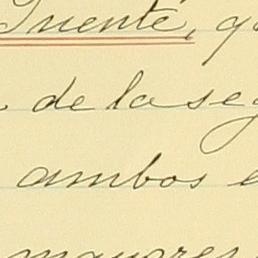 Puente, q
de la seg
ambos e
mayores